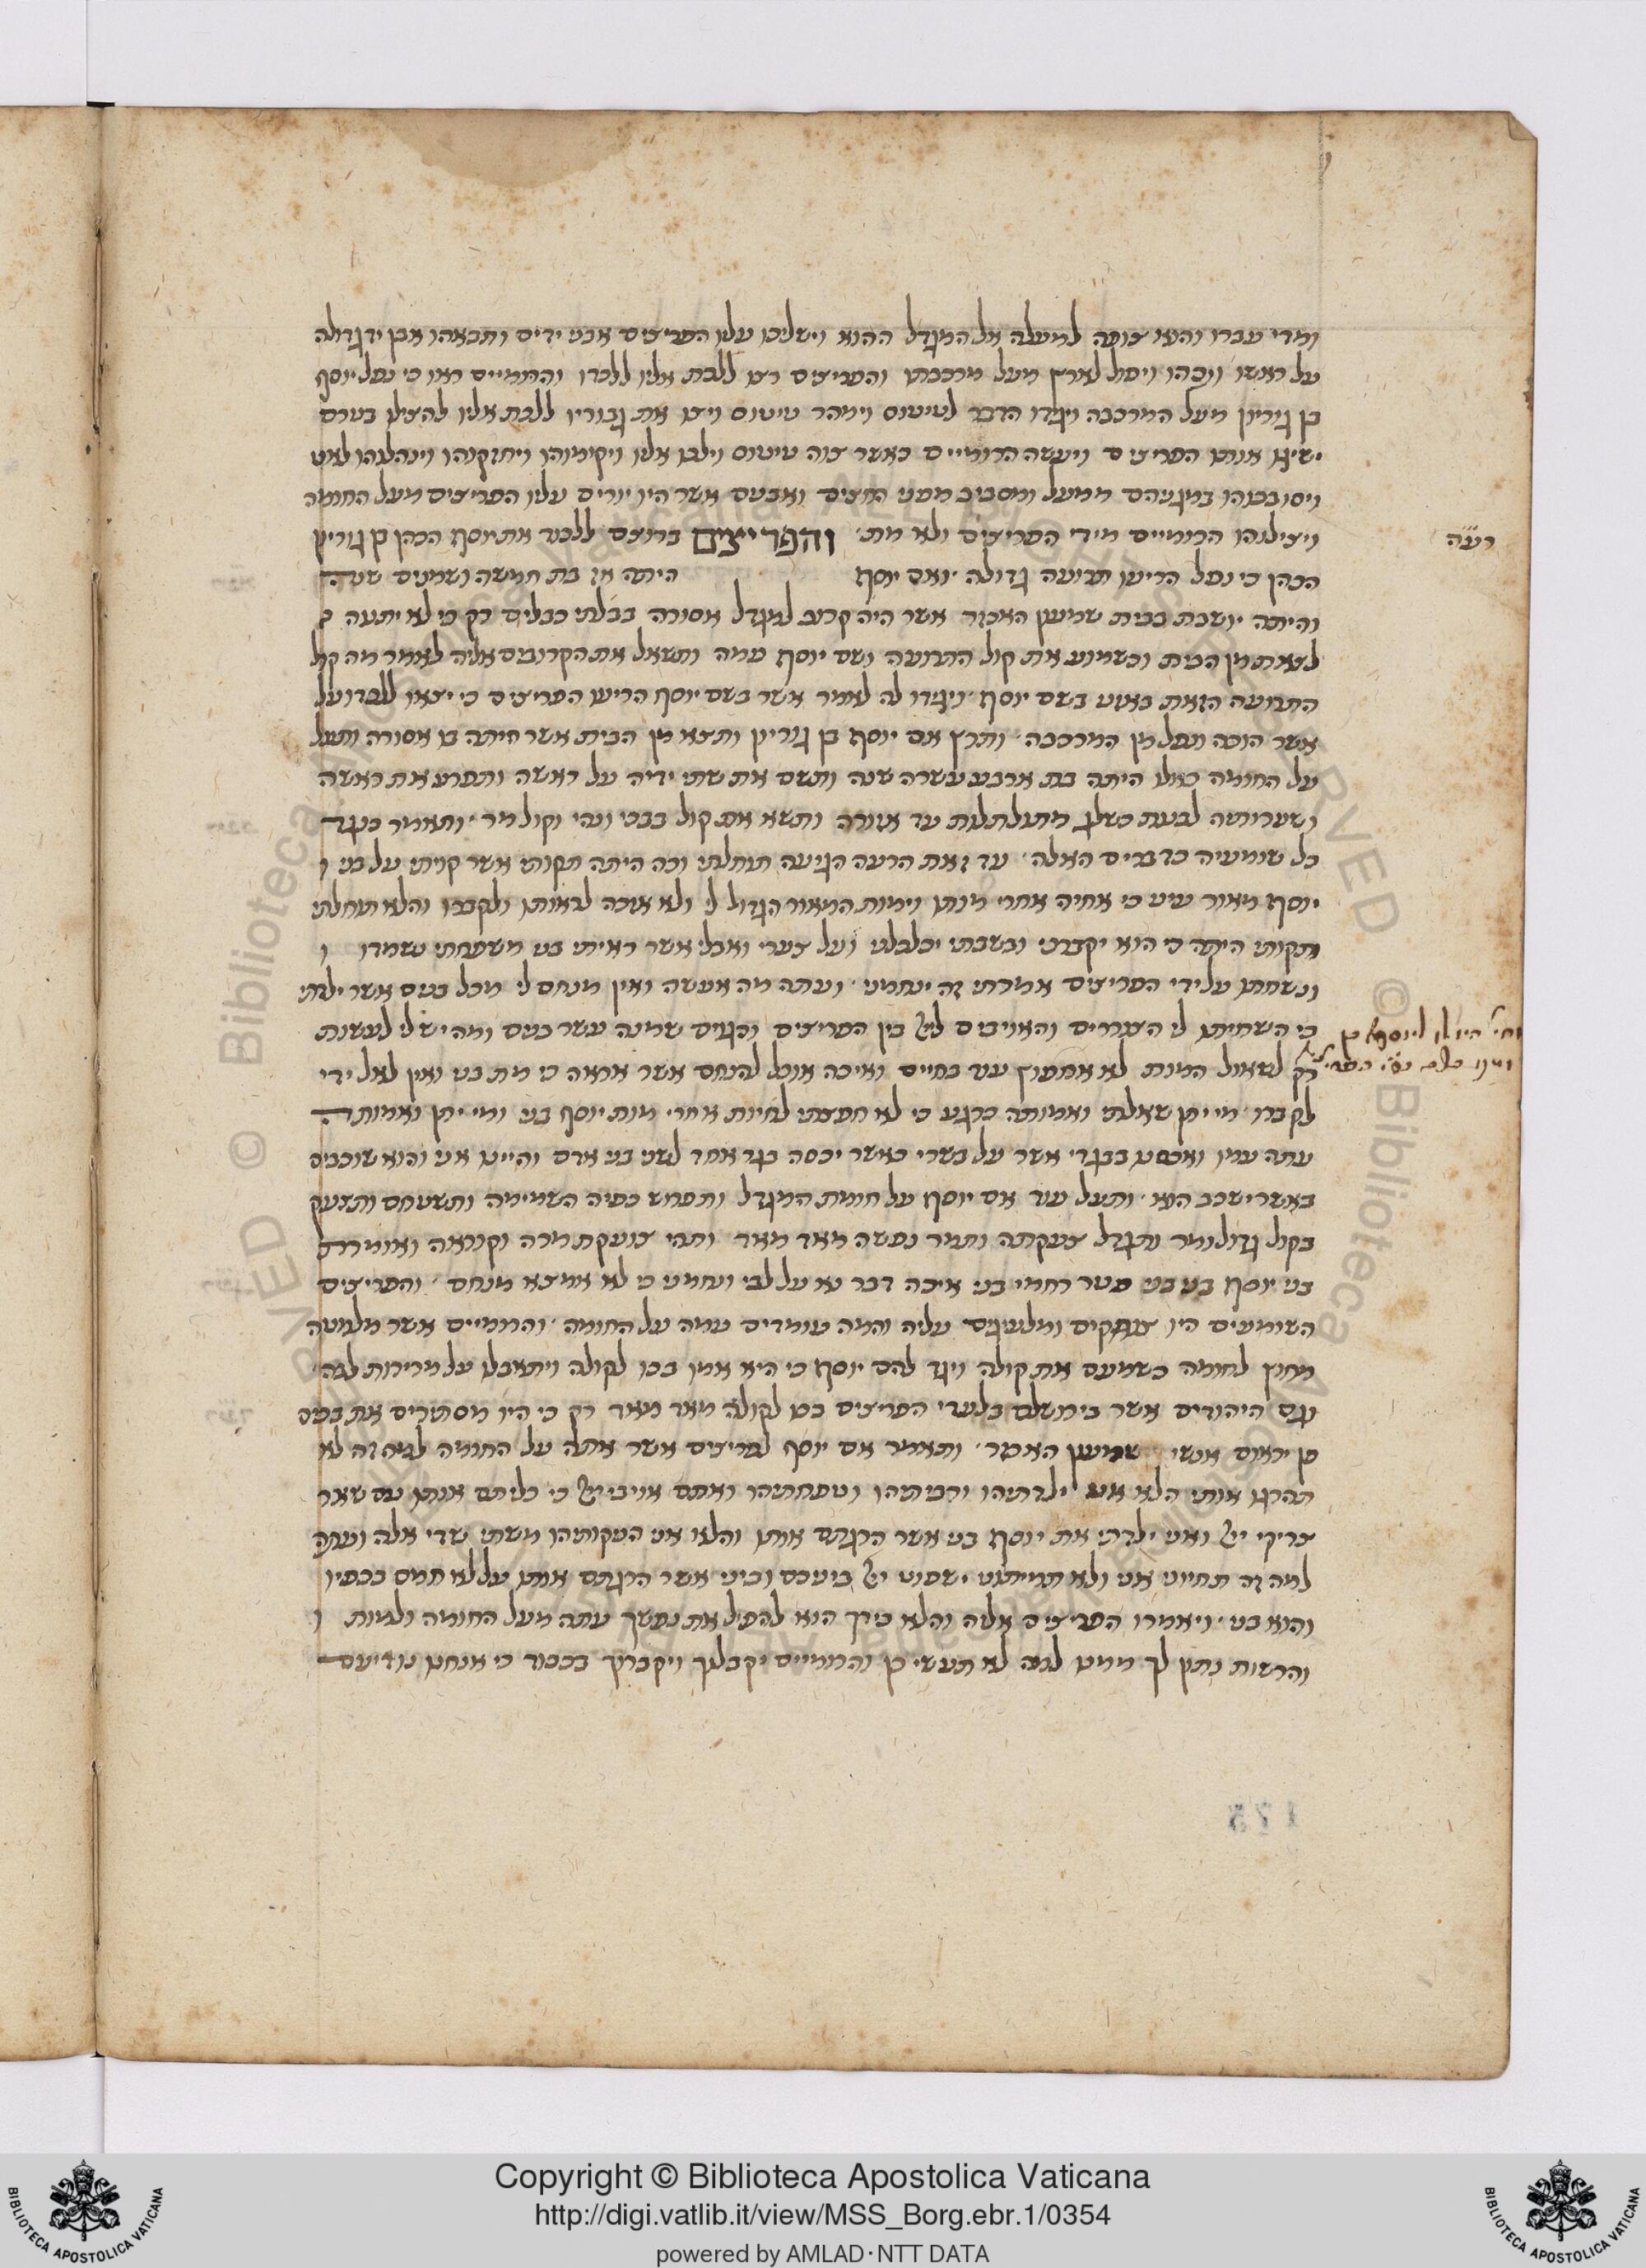 ומדי עברו והוא צופה למעלה אל המגדל ההוא וישליכו עליו הפריצים אבני ידים ותבאהו אבן יד גדולה
על ראשו ויכהו ויפול לארץ מעל מרכבתו והפריצים רצו ללכת אליו ללכדו והרומיים ראו כי נפל יוסף
בן גוריון מעל המרכבה ויגידו הדבר לטיטוס וימהר טיטוס ויצו את גבוריו ללכת אליו להצילו בטרם
ישיגו אותו הפריצים ויעשו הרומיים כאשר צוה טיטוס וילכו אליו ויקימוהו ויחזקוהו וינהלוהו לאט
ויסובבוהו במגניהם ממעל ומסביב מפני החצים ואבנים אשר היו יורים עליו הפריצים מעל החומה
ויצילוהו הרומיים מידי הפריצים ולא מת׳ והפריצים ברוצם ללכוד את יוסף הכהן בן גוריון
רעה
הכהן כי נפל הריעו תרועה גדולה ׳ ואם יוסף היתה אז בת חמשה ושמנים שנה
והיתה יושבת בבית שמעון האכזר אשר היה קרוב למגדל אסורה בבלתי כבלים רק כי לא יתנה
לצאת מן הבית וכשמוע את קול התרועה ושם יוסף עמה ותשאל את הקרובים אליה לאמר מה קול
התרועה הזאת באזני בשם יוסף ׳ ויגידו לה לאמר אשר בשם יוסף הריעו הפריצים כי יצאו ללכדו על
אשר הוכה ונפל מן המרכבה ׳ ותרץ אם יוסף בן גוריון ותצא מן הבית אשר היתה בו אסורה ותעל
על החומה כאלו היתה בת ארבע עשרה שנה ותשם את שתי ידיה על ראשה ותפרע את ראשה
ושערותיה לבנות כשלג מתגלגלות עד אזורה ותשא את קול בבכי ונהי וקול מר ׳ ותאמר כנגד
כל שומעיה כדברים האלה ׳ עד זאת הרעה הגיעה תוחלתי וכה היתה תקותי אשר קויתי על בני
יוסף מאור עיני כי אחיה אחרי מותו וימות המאור הגדול לי ולא אזכה לראותו ולקברו והלא תוחלתי
ותקותי היתה כי הוא יקברני ובשבתי יכלכלני ועל צערי ואבלי אשר ראיתי בני משפחתי נשמדו
ונשחתו על ידי הפריצים אמרתי זה ינחמני ׳ ועתה מה אעשה ואין מנחם לי מכל בנים אשר ילדתי
כי השחיתו לי הצוררים והאויבים ליי בין הפריצים והגוים שמונה עשר בנים ומה יש לי לעשות
רק לשאול המות לא אחפוץ עוד בחיים ואיכה אוכל להנחם אשר אראה כי מת בני ואין לאל ידי
לקברו ׳ מי יתן שאלתי ואמותה כרגע כי לא חפצתי לחיות אחרי מות יוסף בני ומי יתן ואמותה
עתה עמו ואכסנו בבגדי אשר על בשרי כאשר יכסה בגד אחד לשני בני אדם והיינו אני והוא שוכבים
באשר ישכב הוא ׳ ותעל עוד אם יוסף על חומת המגדל ותפרש כפיה השמימה ותשתחו ותזעק
בקול גדול ומר ותגדל צעקתה ותמר נפשה מאד מאד ותהי צועקת מרה וקוראה ואומרת
בני יוסף בני בני פטר רחמי בני איכה דבר נא על לבי ונחמני כי לא אמצא מנחם ׳ והפריצים
השומעים היו צוחקים ומלעיגים עליה והמה עומדים עמה על החומה ׳ והרומיים אשר מלמטה
מחוץ לחומה כשמעם את קולה ויגד להם יוסף כי היא אמו בכו לקולה ויתאבלו על מרירות לבה
וגם היהודים אשר בירושלם בלעדי הפריצים בכו לקולה מאד מאד רק כי היו מסתירים את בכים
פן יראום אנשי שמעון האכזר ׳ ותאמר אם יוסף לפריצים אשר אתה על החומה למה זה לא
תהרגו אותי הלא אני ילדתיהו ורביתיהו וטפחתיהו ואתם אויבי יי׳ כי כליתם אותו עם שאר
צדיקי יי׳ ואני ילדתי את יוסף בני אשר הרגתם אותו והלא אני הניקותיהו משתי שדי אלה ועתה
למה זה תחיוני אני ולא תמיתוני ישפוט יי׳ ביניכם וביני אשר הרגתם אותו על לא חמס בכפיו
והוא בני ׳ ויאמרו הפריצים אליה והלא בידך הוא להפיל את נפשך עתה מעל החומה ולמות
והרשות נתון לך ממנו למה לא תעשי כן והרומיים יקבלוך ויקברוך בכבוד כי אנחנו יודעים
175
Copyright © Biblioteca Apostolica Vaticana
http://digi.vatlib.it/view/MSS_Borg.ebr.1/0354
powered by AMLAD·NTT DATA
BIBLIOTECA APOSTOLICA VATICANA
BIBLIOTECA APOSTOLICA VATICANA